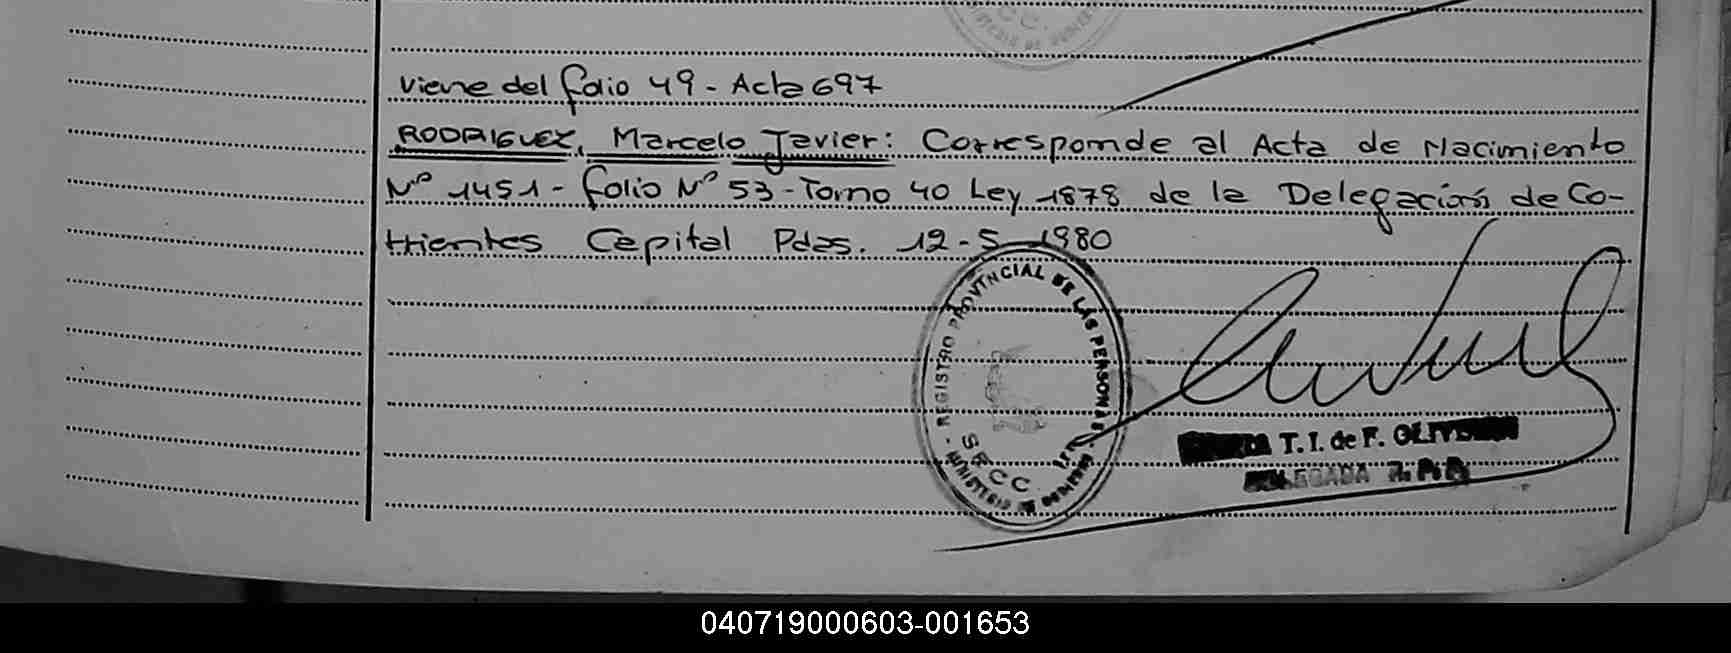 Viene del folio 49 - Acta 697
RODRIGUEZ, Marcelo Javier: Corresponde al Acta de Nacimiento
Nº 1451 - folio Nº 53 - Tomo 40 Ley 1878 de la Delegación de Co-
rrientes Capital Pdas. 12-5-1980
REGISTRO PROVINCIAL DE LAS PERSONAS
SECC.
MINISTERIO DE GOBIERNO
T. I. de F.
DELEGADA
040719000603-001653